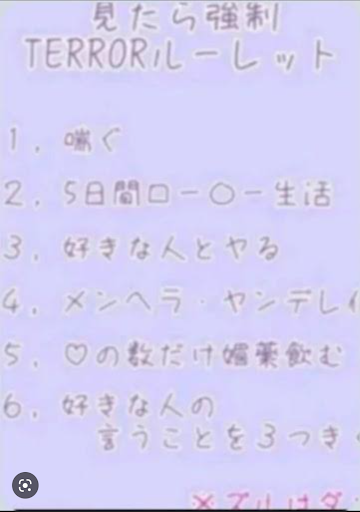 見たら強制
TERRORルーレット
1. 喘ぐ
2. 5日間ロー〇ー生活
3. 好きな人とヤる
4. メンヘラ・ヤンデレ
5. ♡の数だけ媚薬飲む
6. 好きな人の
言うことを3つき
※ズルはダ